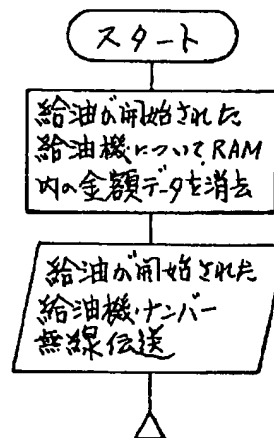 スタート
給油が開始された
給油機について、RAM
内の金額データを消去
給油が開始された
給油機ナンバー
無線伝送